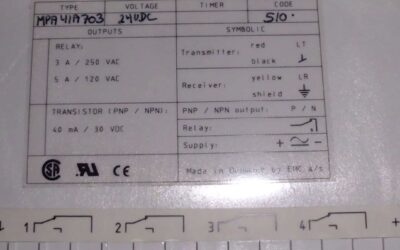 TYPE VOLTAGE TIMER CODE
MPA41A703 24VDC 510.
OUTPUTS SYMBOLIC
RELAY:
3 A / 250 VAC
5 A / 120 VAC
Transmitter: red LT
black
Receiver: yellow LR
shield
TRANSISTOR (PNP / NPN):
40 mA / 30 VDC
PNP / NPN output: P / N
Relay:
Supply: +
Made in Denmark by EHC A/S
1 2 3 4 +